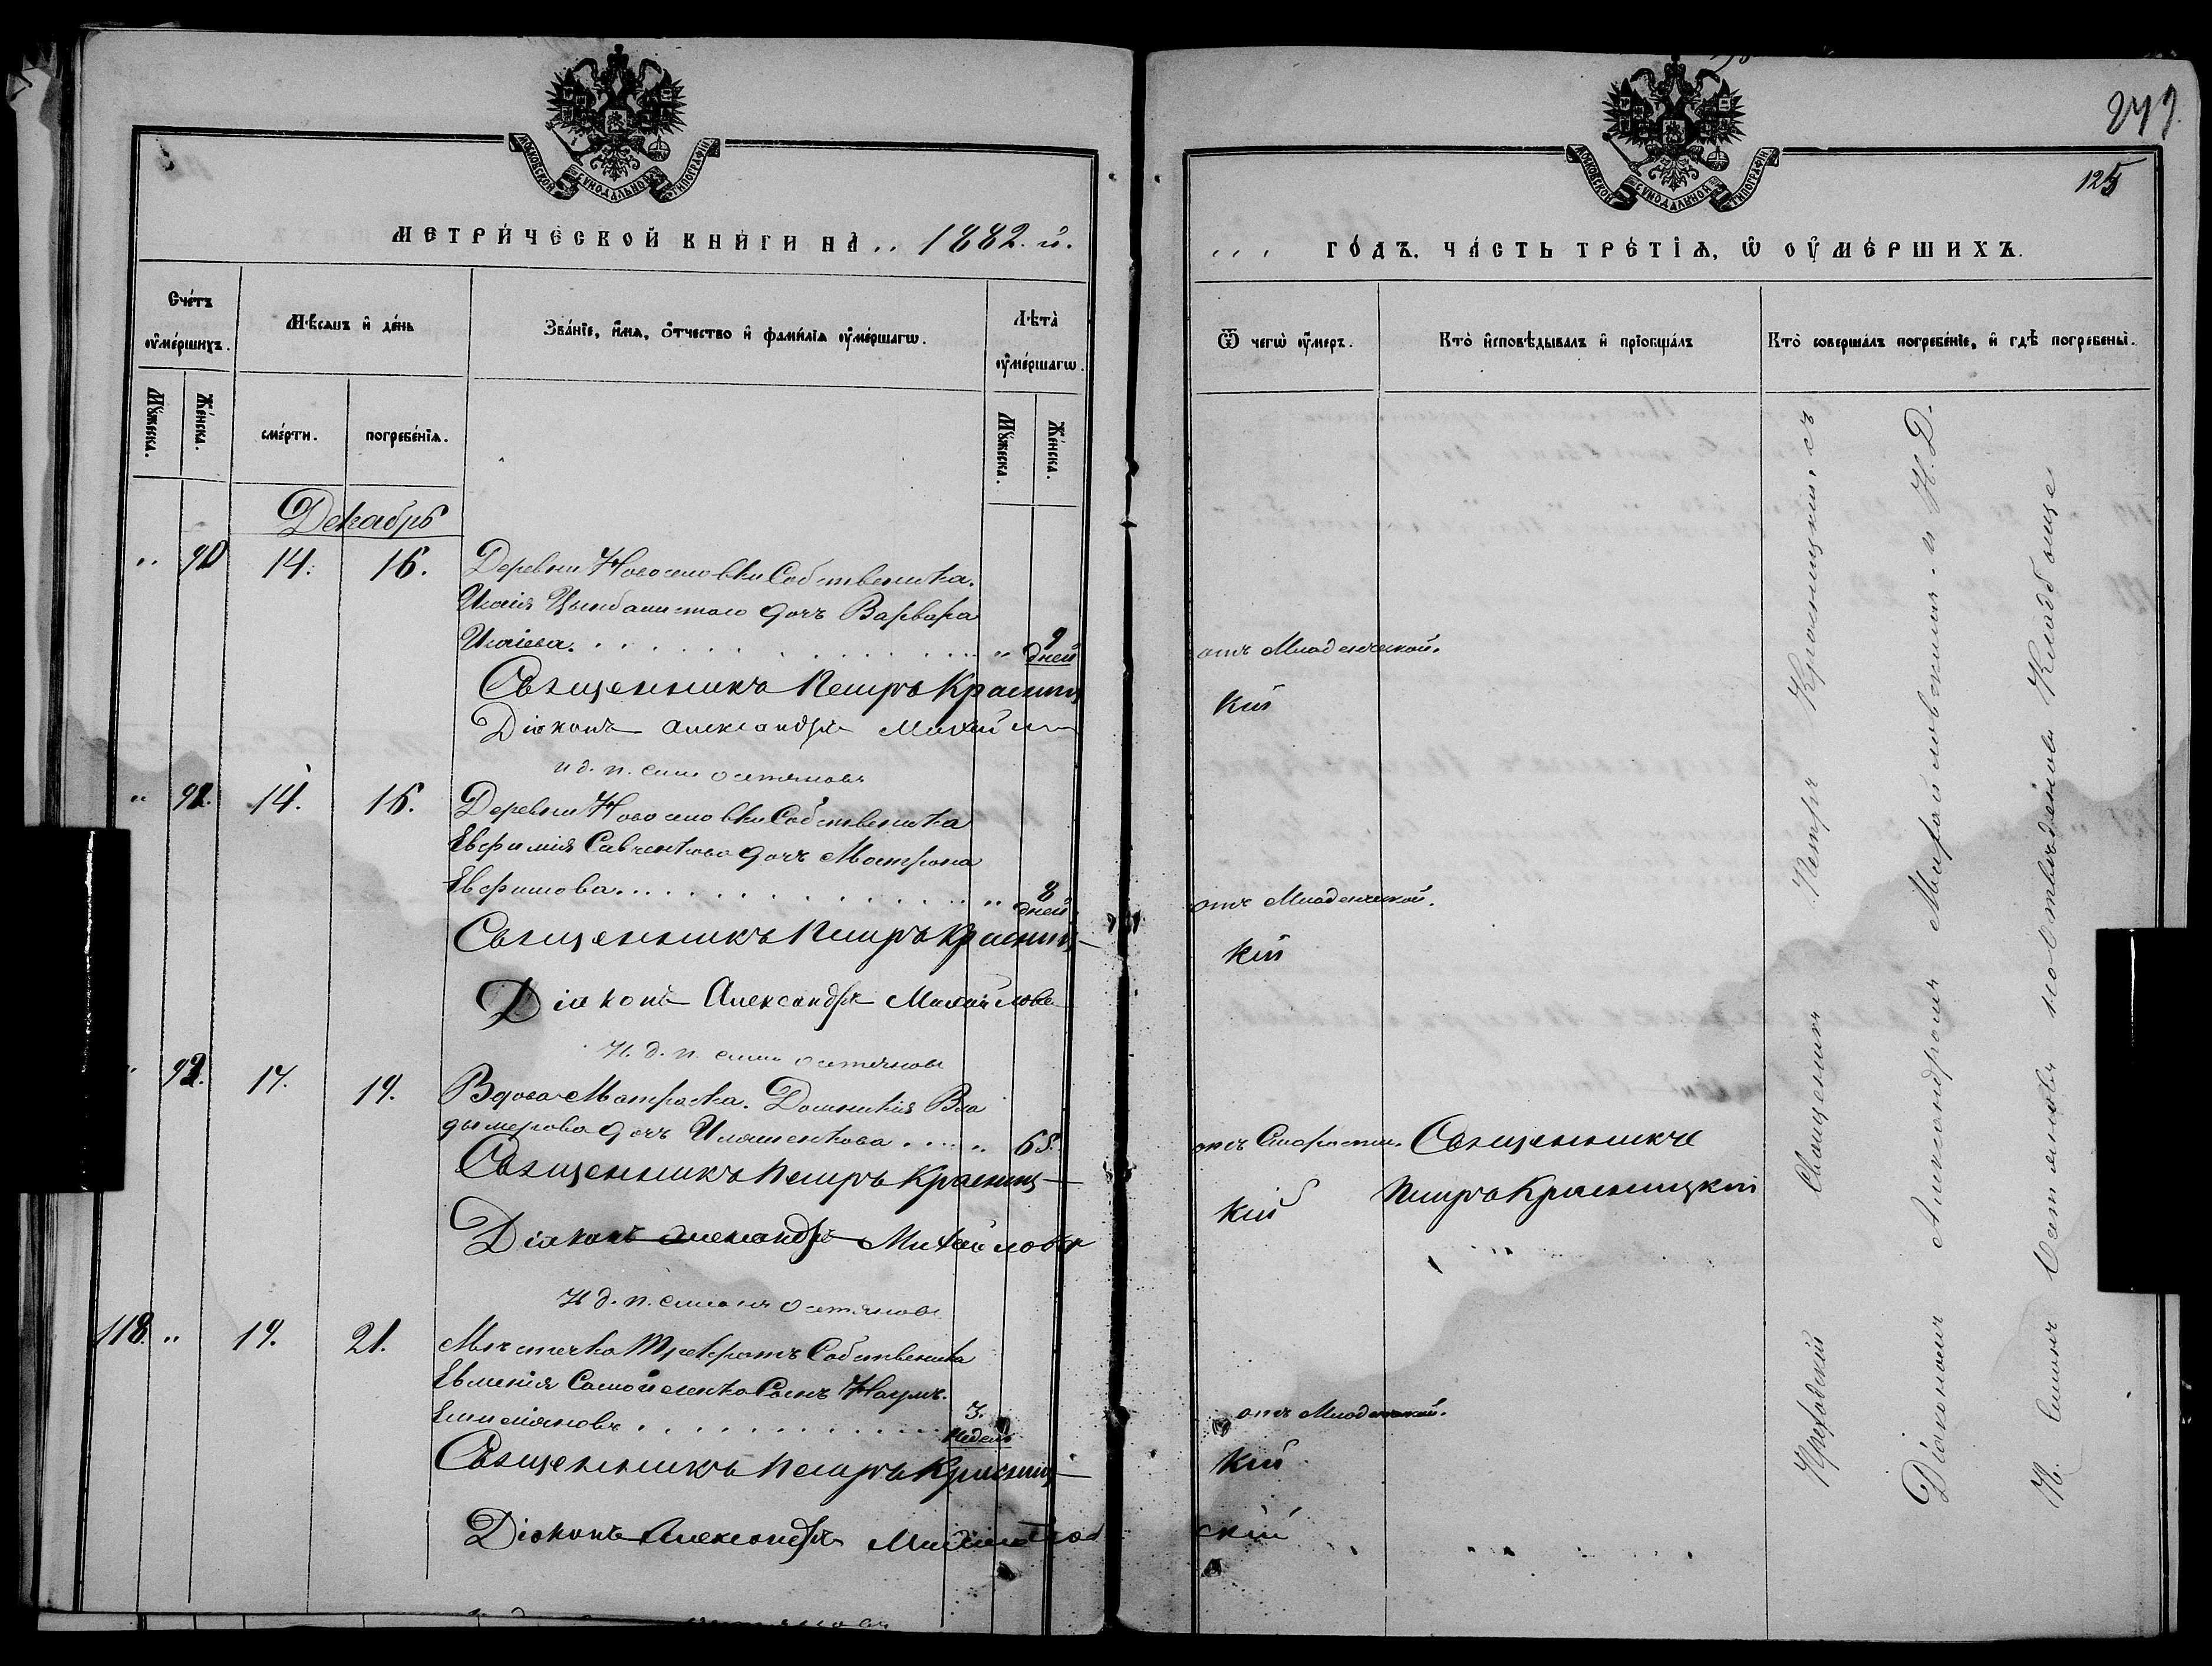 МОСКОВСКОЙ СѴНОДАЛЬНОЙ ТИПОГРАФІИ
МЕТРИ́ЧЕСКОЙ КНИ́ГИ НА̀ .. 1882. й.
Счётъ ᲂу҆ме́ршихъ.
Мѣ́сяцъ и҆ де́нь
Зва́нїе, и҆́мѧ, ѻ҆́тчество и҆ фами́лїѧ ᲂу҆ме́ршагѡ.
Лѣта̀ ᲂу҆ме́ршагѡ.
Мꙋ́жеска.
Же́нска.
сме́рти.
погребе́нїѧ.
Мꙋ́жеска.
Же́нска.
Декабрь
" 90 14. 16. Деревни Новоселовки Собственика.
Исаія Цымбалистого дочь Варвара
Исаіева. " 9 дней
Священникъ Петръ Красниц
Діаконъ Александръ Михайл
и д. п. Симе Остяновъ
" 91. 14. 16. Деревни Новоселовки Собственика
Евфимія Савченкова дочь Матрона
Евфимова. " 8 дней
Священникъ Петръ Красниц
Діаконъ Александръ Михайлов
И. д. п. Симе Остяновъ
" 92. 17. 19. Вдова Матроска. Домникія Вла
дымерова дочь Иляшенкова " 65.
Священникъ Петръ Красниц
Діаконъ Александръ Михайлов
И д. п. Симеонъ Остяновъ
118. " 19. 21. Мѣстечка Трекратъ Собственика
Евменія Самойленка Сынъ Наумъ.
3. недел
Священникъ Петръ Красниц
Діаконъ Александръ
249.
125
МОСКОВСКОЙ СѴНОДАЛЬНОЙ ТИПОГРАФІИ
... ГО́ДЪ. ЧА́СТЬ ТРЕ́ТЇѦ, Ѡ҆ ОУ҆МЕ́РШИХЪ.
Ѿ чегѡ̀ ᲂу҆́меръ.
Кто̀ и҆сповѣ́дывалъ и҆ прїобща́лъ
Кто̀ соверша́лъ погребе́нїе, и҆ гдѣ̀ погребены̀.
отъ Младенческой.
кій
отъ Младенческой.
кій
отъ Старости. Священникъ
кій Петръ Красницкій
отъ Младенской.
кій
скій
Священникъ Петръ Красницкій. съ
Діакономъ Александромъ Михайловскимъ. и И. Д.